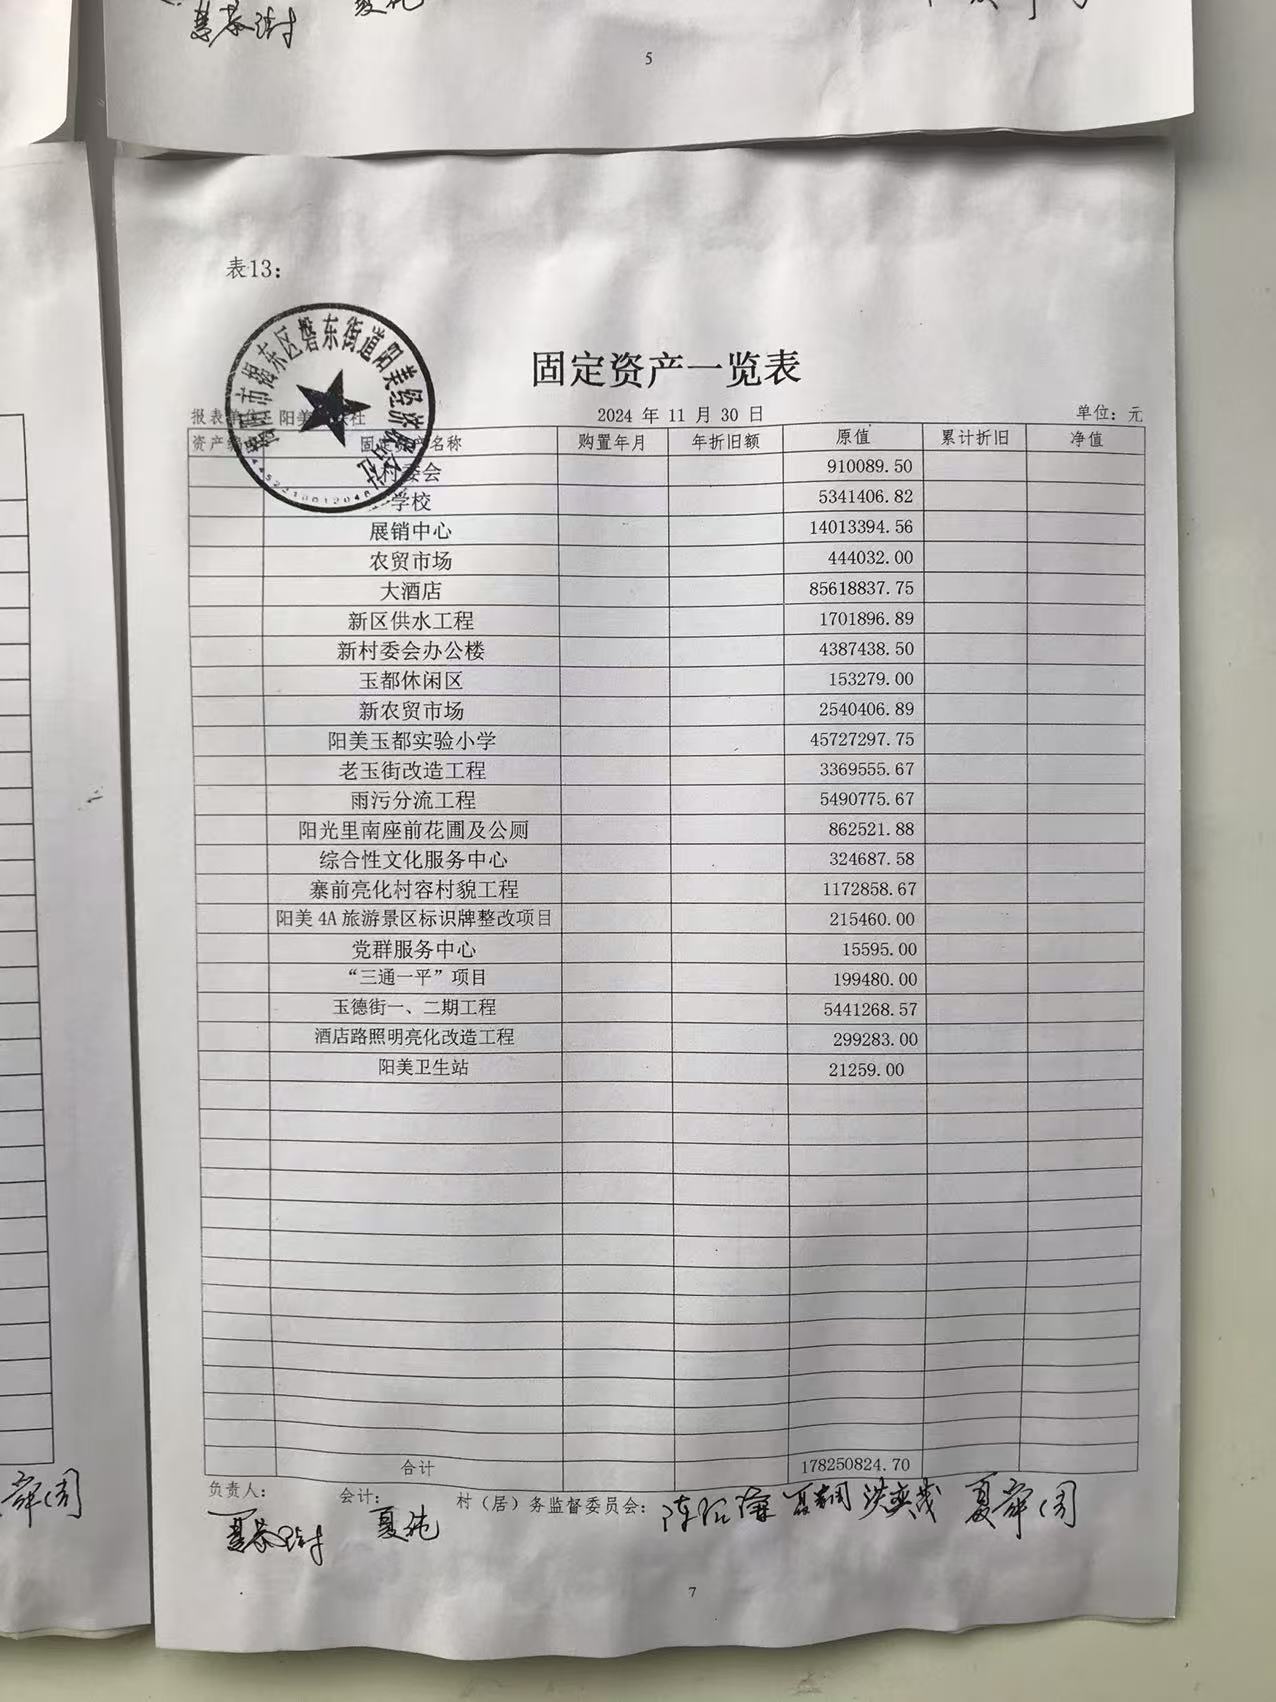 5
表13:
揭阳市揭东区磐东街道阳美经济联合社
固定资产一览表
报表单位：阳美经联社 2024 年 11 月 30 日 单位: 元
资产编 固定资产名称 购置年月 年折旧额 原值 累计折旧 净值
村委会 910089.50
学校 5341406.82
展销中心 14013394.56
农贸市场 444032.00
大酒店 85618837.75
新区供水工程 1701896.89
新村委会办公楼 4387438.50
玉都休闲区 153279.00
新农贸市场 2540406.89
阳美玉都实验小学 45727297.75
老玉街改造工程 3369555.67
雨污分流工程 5490775.67
阳光里南座前花圃及公厕 862521.88
综合性文化服务中心 324687.58
寨前亮化村容村貌工程 1172858.67
阳美 4A 旅游景区标识牌整改项目 215460.00
党群服务中心 15595.00
“三通一平”项目 199480.00
玉德街一、二期工程 5441268.57
酒店路照明亮化改造工程 299283.00
阳美卫生站 21259.00
合计 178250824.70
负责人: 会计: 村（居）务监督委员会:
夏舜周
7